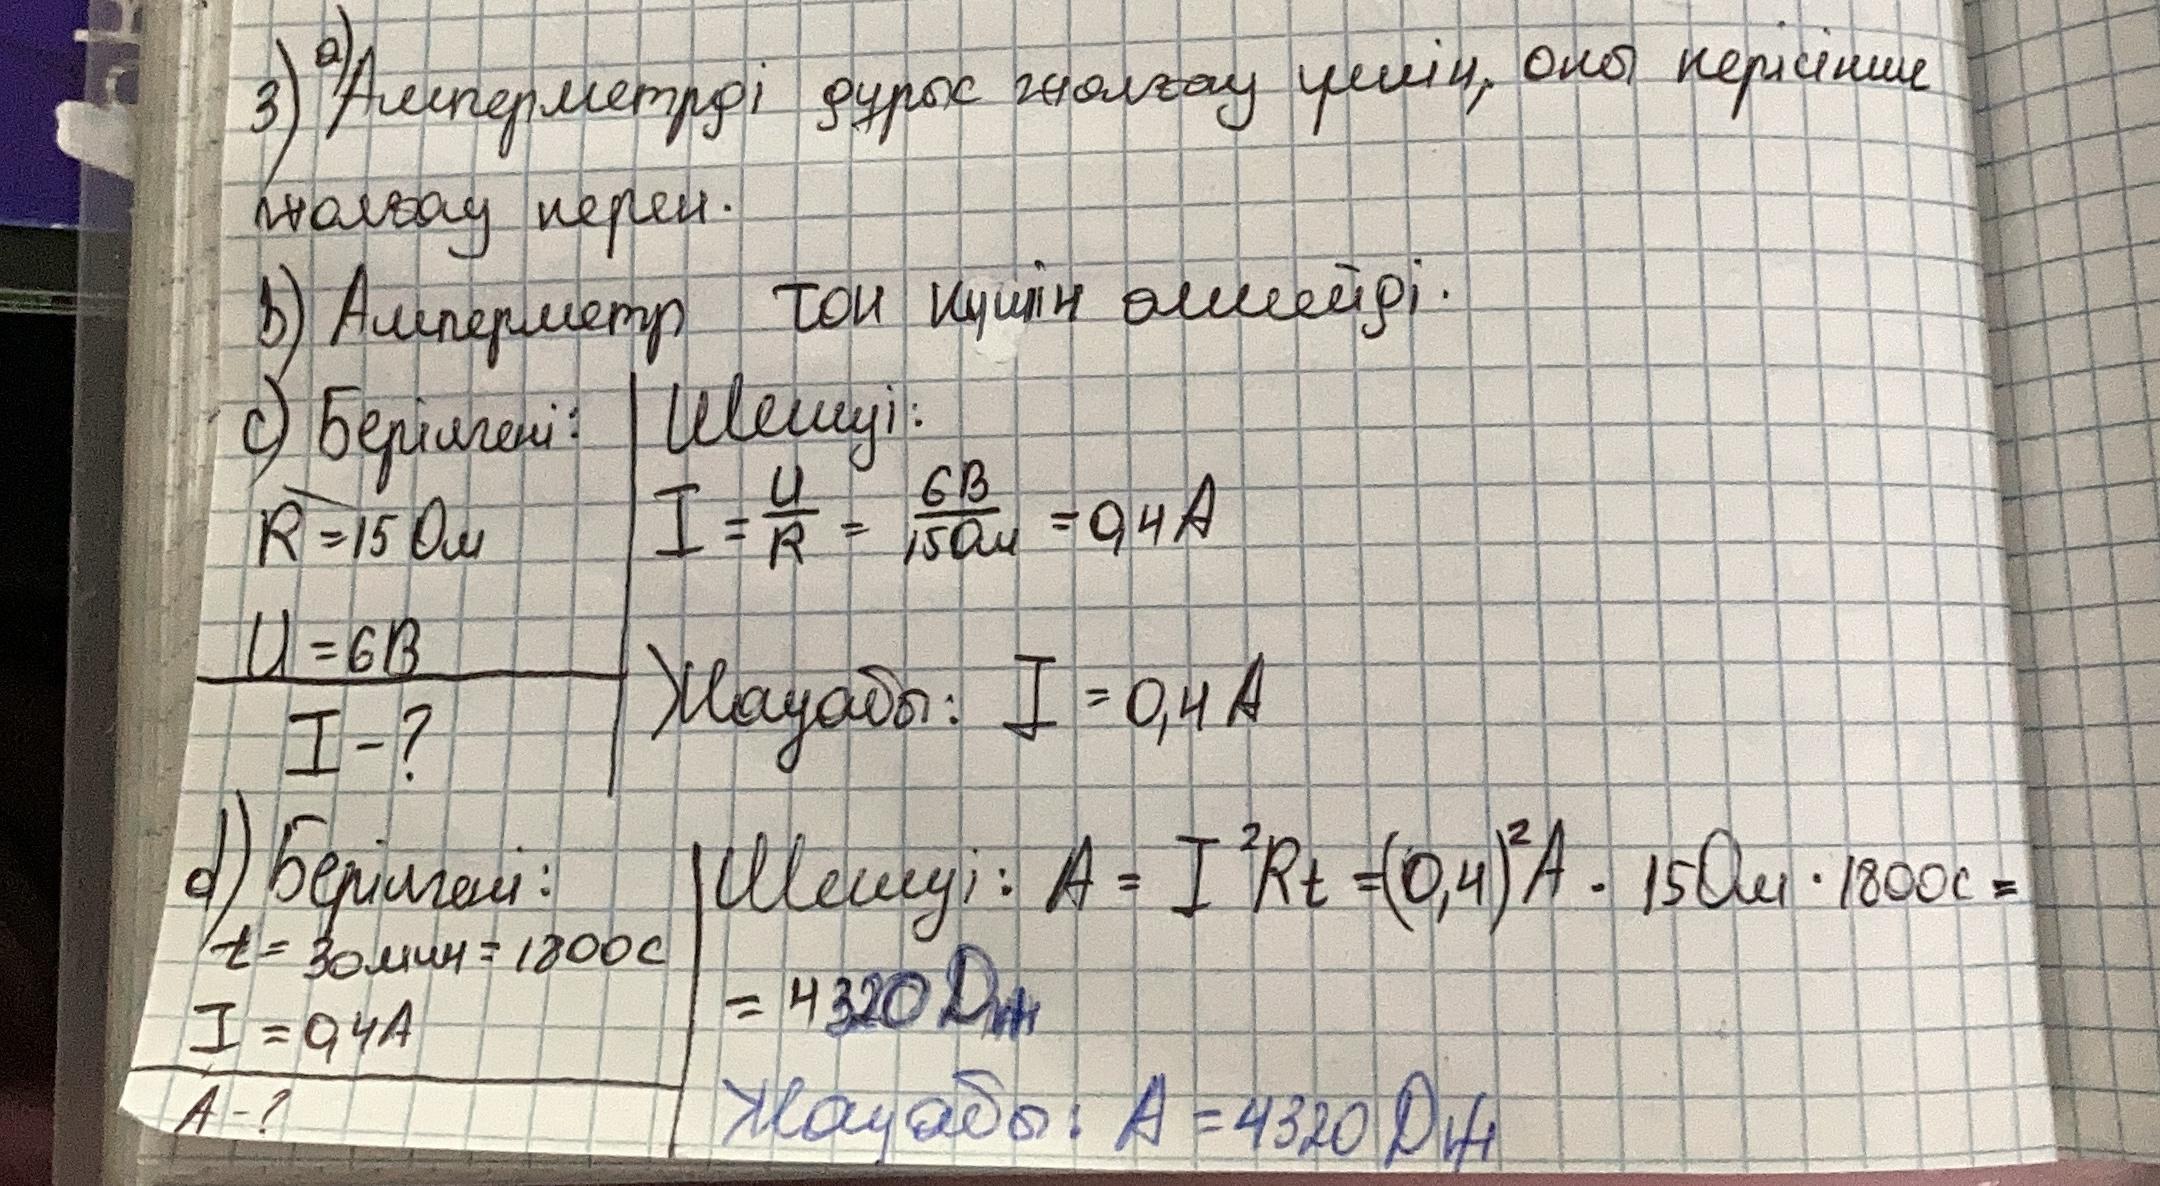 3) а) Амперметрді дұрыс жалғау үшін, оны керісінше
жалғау керек.
b) Амперметр ток күшін өлшейді.
c) Берілгені:
R = 15 Ом
U = 6В
I - ?
Шешуі:
I = U/R = 6В/15Ом = 0,4 А
Жауабы: I = 0,4 А
d) Берілгені:
t = 30мин = 1800с
I = 0,4А
A - ?
Шешуі: A = I²Rt = (0,4)²А · 15Ом · 1800с =
= 4320 Дж
Жауабы: A = 4320 Дж